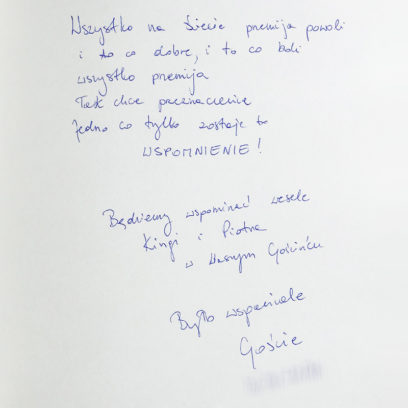 Wszystko na świecie premija powoli
i to co dobre, i to co boli
wszystko premija
Tak chce przeznaczenie
Jedno co tylko zostaje to
WSPOMNIENIE!
Będziemy wspominać wesele
Kingi i Piotra
w Waszym Gościńcu
Było wspaniale
Goście